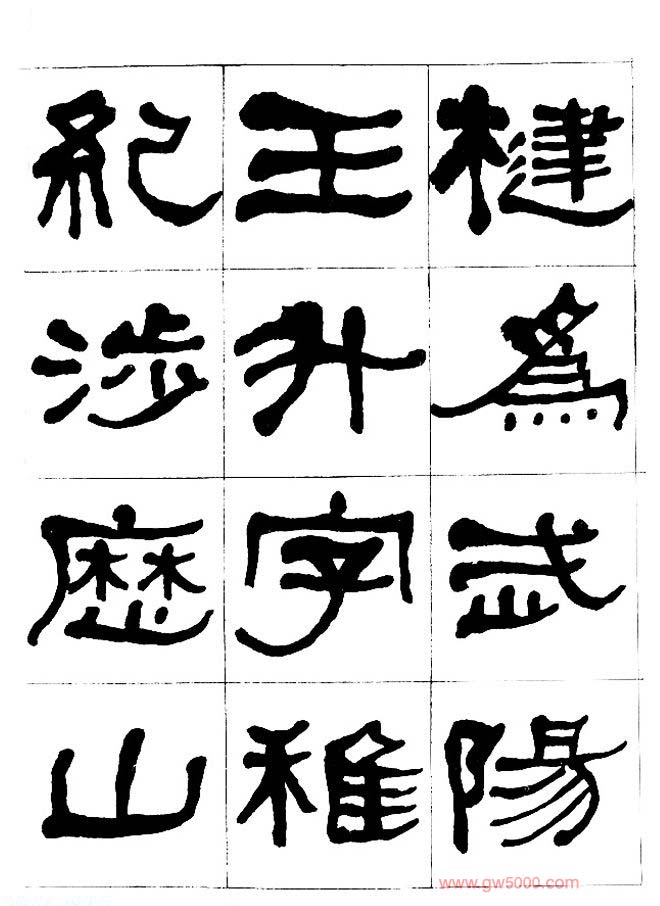 楗為武陽
王升字稚
紀涉歷山
www.gw5000.com